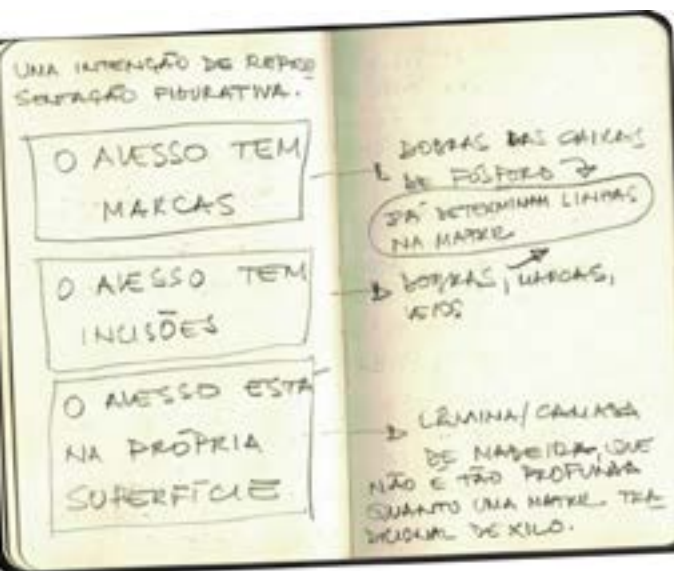 UMA INTENÇÃO DE REPRE
SENTAÇÃO FIGURATIVA.
O AVESSO TEM
MARCAS
O AVESSO TEM
INCISÕES
O AVESSO ESTÁ
NA PRÓPRIA
SUPERFÍCIE
DOBRAS DAS CAIXAS
DE FÓSFORO
JÁ DETERMINAM LINHAS
NA MATRIZ
DOBRAS, MARCAS,
VEIOS
LÂMINA/CAMADA
DE MADEIRA, QUE
NÃO É TÃO PROFUNDA
QUANTO UMA MATRIZ TRA
DICIONAL DE XILO.